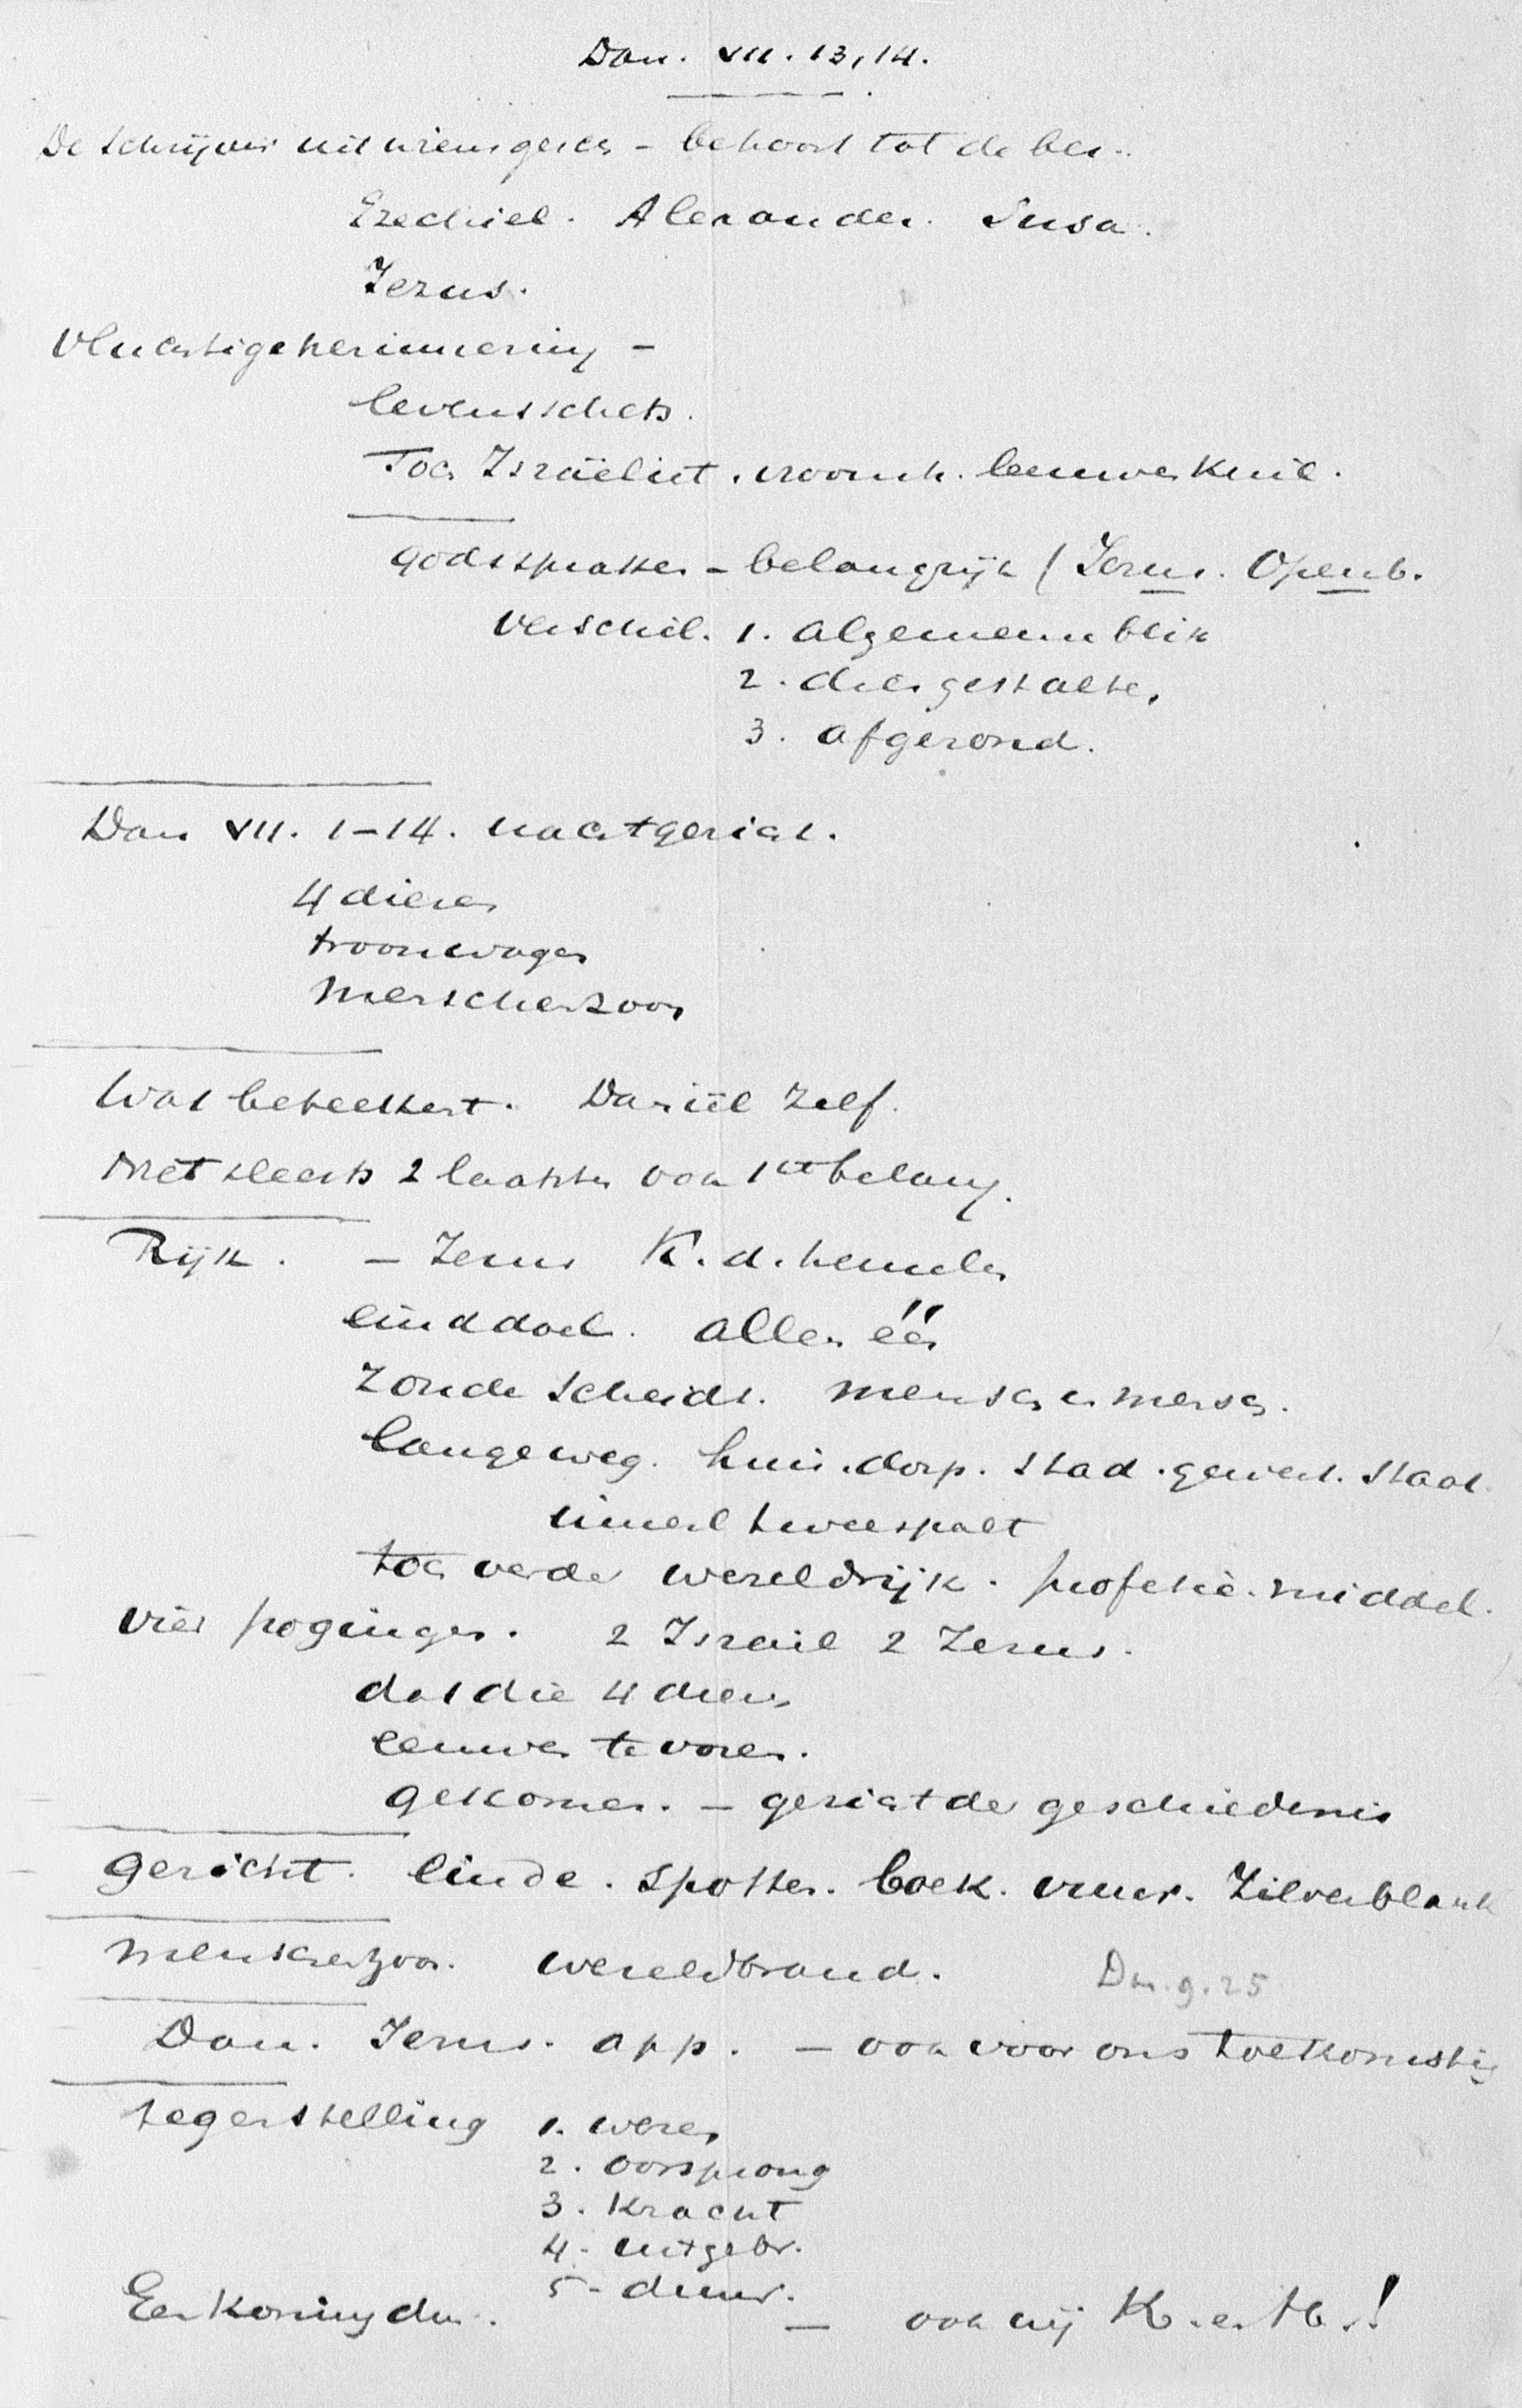 Dan. VII. 13, 14.
De schrijver uit wiens geschr – behoort tot de bek..
Ezechiel. Alexander. Susa.
Jezus.
Vluchtige herinnering –
levensschets.
Toch Israëliet. vroomh. leeuwenkuil.
godsspraken – belangrijk / Jezus. Openb.
Verschil. 1. algemeenen blik
2. diergestalten,
3. afgerond.
Dan VII. 1–14. nachtgezicht.
4 dieren
troonwagen
Menschenzoon
Wat beteekent. Daniël zelf.
Met slechts 2 laatste van 1ste belang.
Rijk. – Jezus K. d. hemelen
einddoel. allen één
Zonde scheidt. mensch en mensch.
Lange weg. huis. dorp. stad. gewest. staat.
immer tweespalt
toch verder wereldrijk. profetie. middel.
Vier pogingen. 2 Israël 2 Jezus.
dat die 4 dieren
eeuwen te voren.
gekomen. – gericht der geschiedenis
Gericht. Einde. Spotten. boek. vuur. Zilverblank
Menschenzoon. Wereldbrand. Dan. 9. 25
Dan. Jezus. app. – ook voor ons toekomstig
Tegenstelling 1. wezen
2. oorsprong
3. Kracht
4. uitgebr.
5 – duur.
Een koningdom. – ook wij K. en H.!